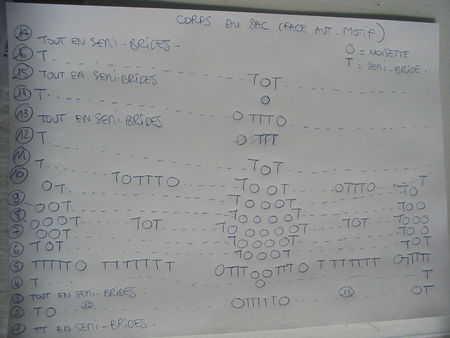 CORPS DU SAC (FACE AUT. MOTIF)
O = NOISETTE
T = SEMI-BRIDE.
TOUT EN SEMI-BRIDES.
16 T.
15 TOUT EN SEMI-BRIDES TOT
14 T. O
13 TOUT EN SEMI-BRIDES O TTTO
12 T. O TTT
11 T. TOT
10 TOTTTO TOOT OTTTO T
9 OT TOOOT TO
8 OOT TOOOOT TOO
7 OOOT TOT TOOOOT TOT TOOO
OOT TOOOOT TOO
6 TOT TOOOT TOT
5 TTTTTO TTTTTTT OTTT OO TTTO TTTTTTT OTTTTT
4 T. O T
3 TOUT EN SEMI-BRIDES OTTTTTO 13 OT
2 TO
1 TT EN SEMI-BRIDES.